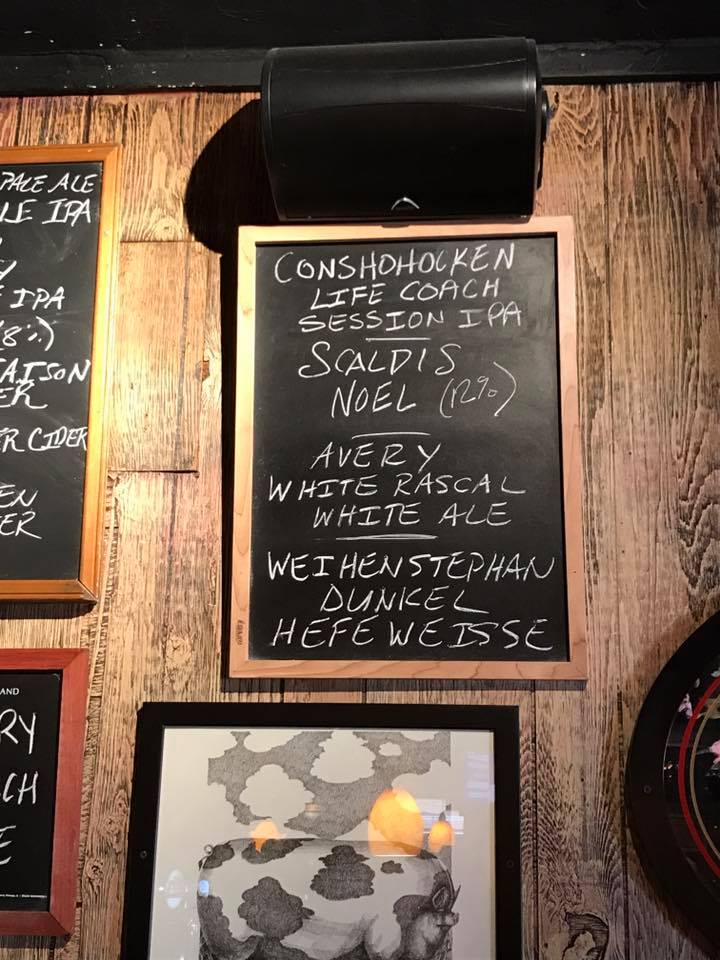 PALE ALE
LE IPA
IPA
(8%)
ER
ER CIDER
EN
ER
CONSHOHOCKEN
LIFE COACH
SESSION IPA
SCALDIS
NOEL (12%)
AVERY
WHITE RASCAL
WHITE ALE
WEIHENSTEPHAN
DUNKEL
HEFEWEISSE
AND
RY
CH
E